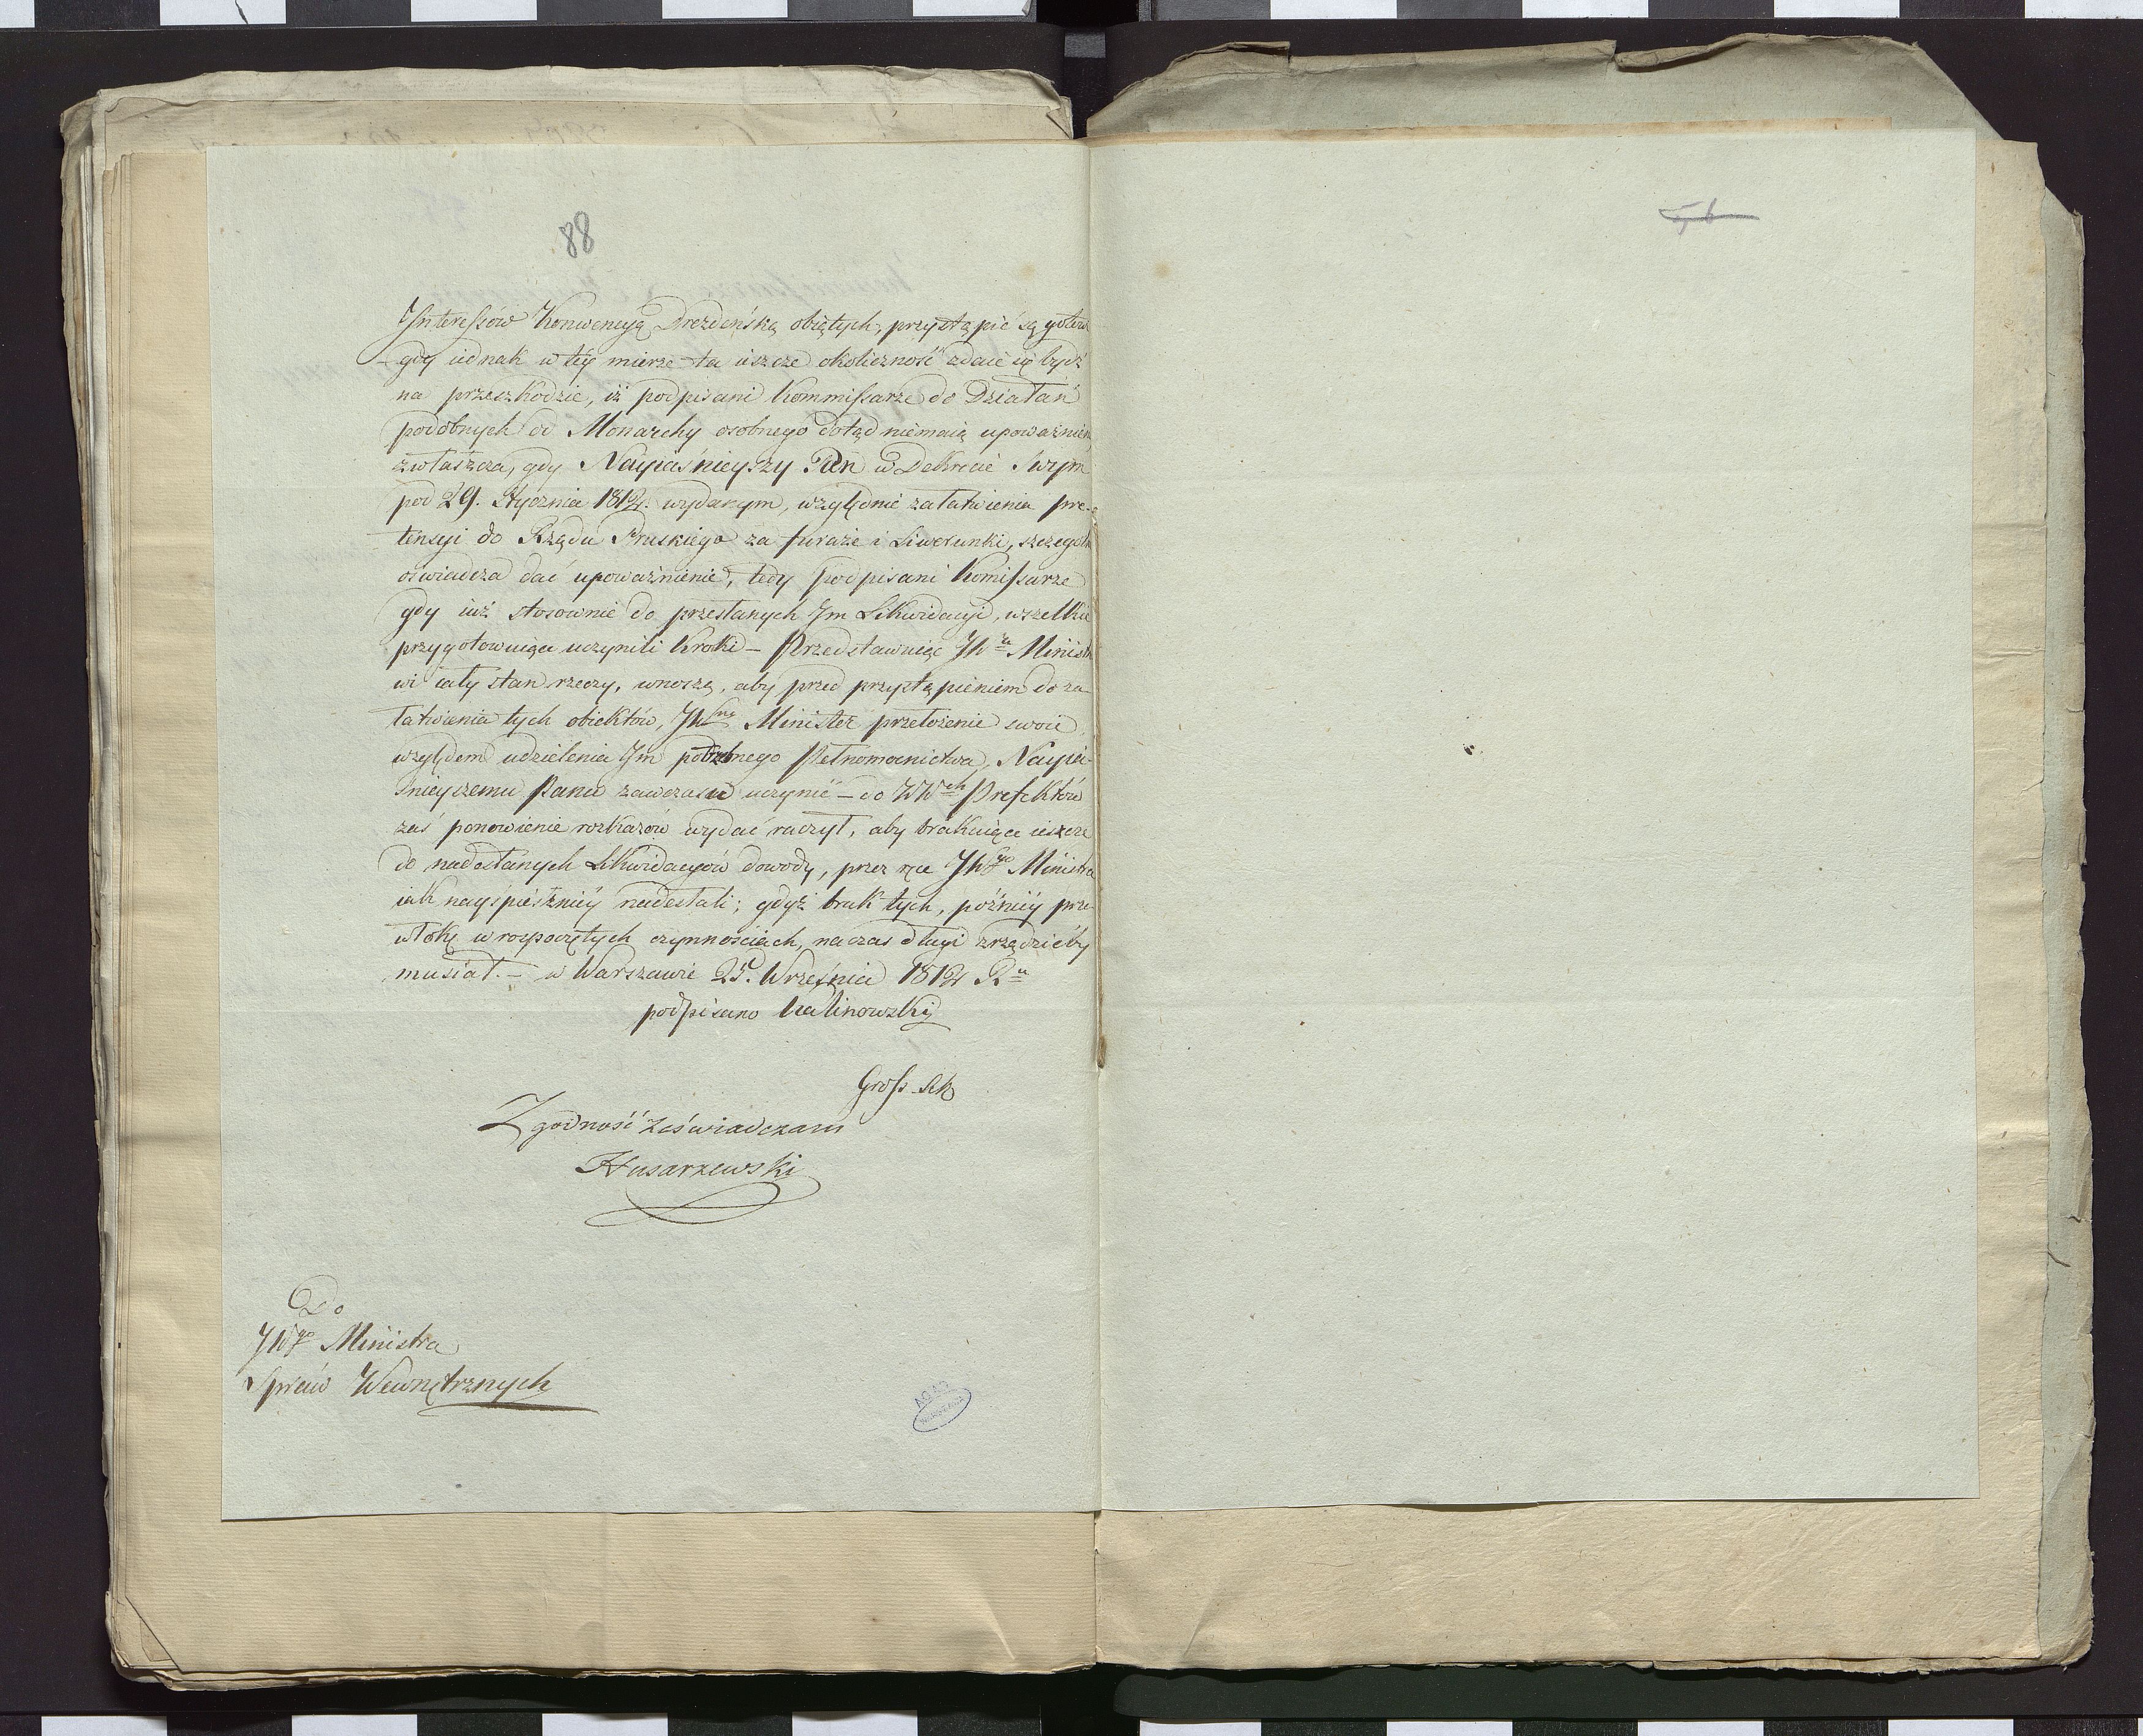 88
Interessów Konwencyą Drezdeńską obiętych, przystąpić są gotow
gdy iednak w tey mierze ta ieszcze okoliczność zdaie się bydź
na przeszkodzie, iż podpisani Kommissarze do Działań
podobnych od Monarchy osobnego dotąd niemaią upoważnien
zwłaszcza, gdy Nayiaśnieyszy Pan w Dekrecie swym
pod 29. Stycznia 1812. wydanym, względnie załatwienia pre-
tensyi do Rządu Pruskiego za furaże i Liwerunki, szczegoln
oświadcza dać upoważnienie, tedy podpisani Komissarze
gdy iuż stosownie do przesłanych Im Likwidacyi, wszelkie
przygotowuiące uczynili kroki – Przedstawuiąc JWu Ministr
wi cały stan rzeczy, wnoszą, aby przed przystąpieniem do za
łatwienia tych obiektów, JWny Minister przełożenie swoie
względem udzielenia Im potrzebnego Pełnomocnictwa, Nayia-
śnieyszemu Panu zawczasu uczynić – do WWch Prefektów
zaś ponowienie rozkazów wydać raczył, aby brakuiące ieszcze
do nadesłanych Likwidacyów dowody, przez ręce JWgo Ministra
iak nayśpieszniéy nadesłali; gdyż brak tych, poźniéy prze
włokę w rozpoczętych czynnościach, na czas długi zrządzićby
musiał. – w Warszawie 25. Września 1812 Ru
podpisano Kalinowski
Gross. Sk
Zgodność zaświadczam
Husarzewski
Do
JWgo Ministra
Spraw Wewnętrznych
AGAD